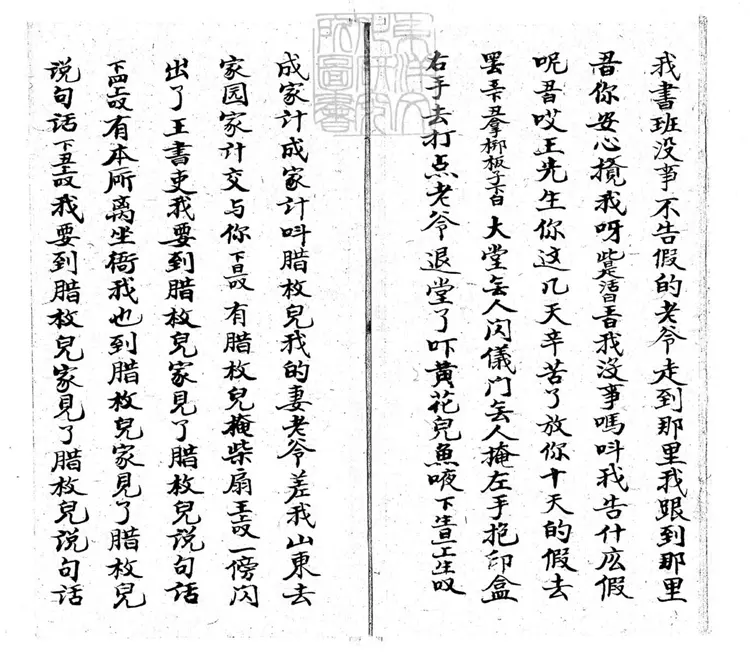 我書班没事不告假的老爷走到那里我跟到那里
吾你安心攪我呀此是活白吾我没事嗎呌我告什庅假
呢吾哎王先生你这几天辛苦了放你十天的假去
罢丑拿梆板子下白大堂無人闪儀门無人掩左手抱印盒
右手去打点老爷退堂了吓黄花兒魚唛下生旦上生叹
成家计成家计呌腊枚兒我的妻老爷差我山東去
家园家计交与你下旦叹有腊枚兒掩柴扇王上叹一傍闪
出了王書吏我要到腊枚兒家見了腊枚兒说句话
上叹有本所离坐衙我也到腊枚兒家見了腊枚兒
说句话下丑上叹我要到腊枚兒家見了腊枚兒说句话